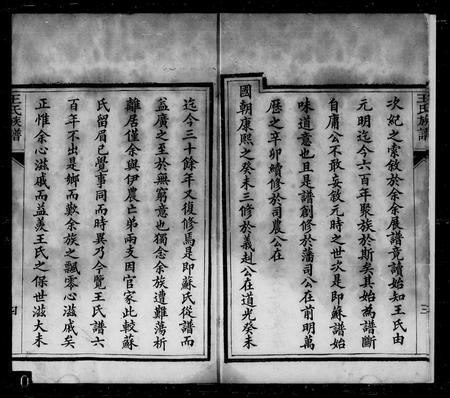 次妃之索敘於余余展譜竟讀始知王氏由
元明迄今六百年聚族於斯矣其始為譜斷
自庸公不敢妄敘元時之世次是即蘇譜始
味道意也且是譜創修於藩司公在前明萬
歷之辛卯續修於司農公在
國朝康熙之癸未三修於義赳公在道光癸未
迄今三十餘年又復修焉是即蘇氏從譜而
益廣之至於無窮意也獨念余族遭難蕩析
離居僅余與伊農亡弟兩支因官家此較蘇
氏留眉已覺事同而時異乃今覽王氏譜六
百年不出是鄉而歎余族之飄零心滋戚矣
正惟余心滋戚而益羨王氏之保世滋大未
王氏族譜
三
王氏族譜
四